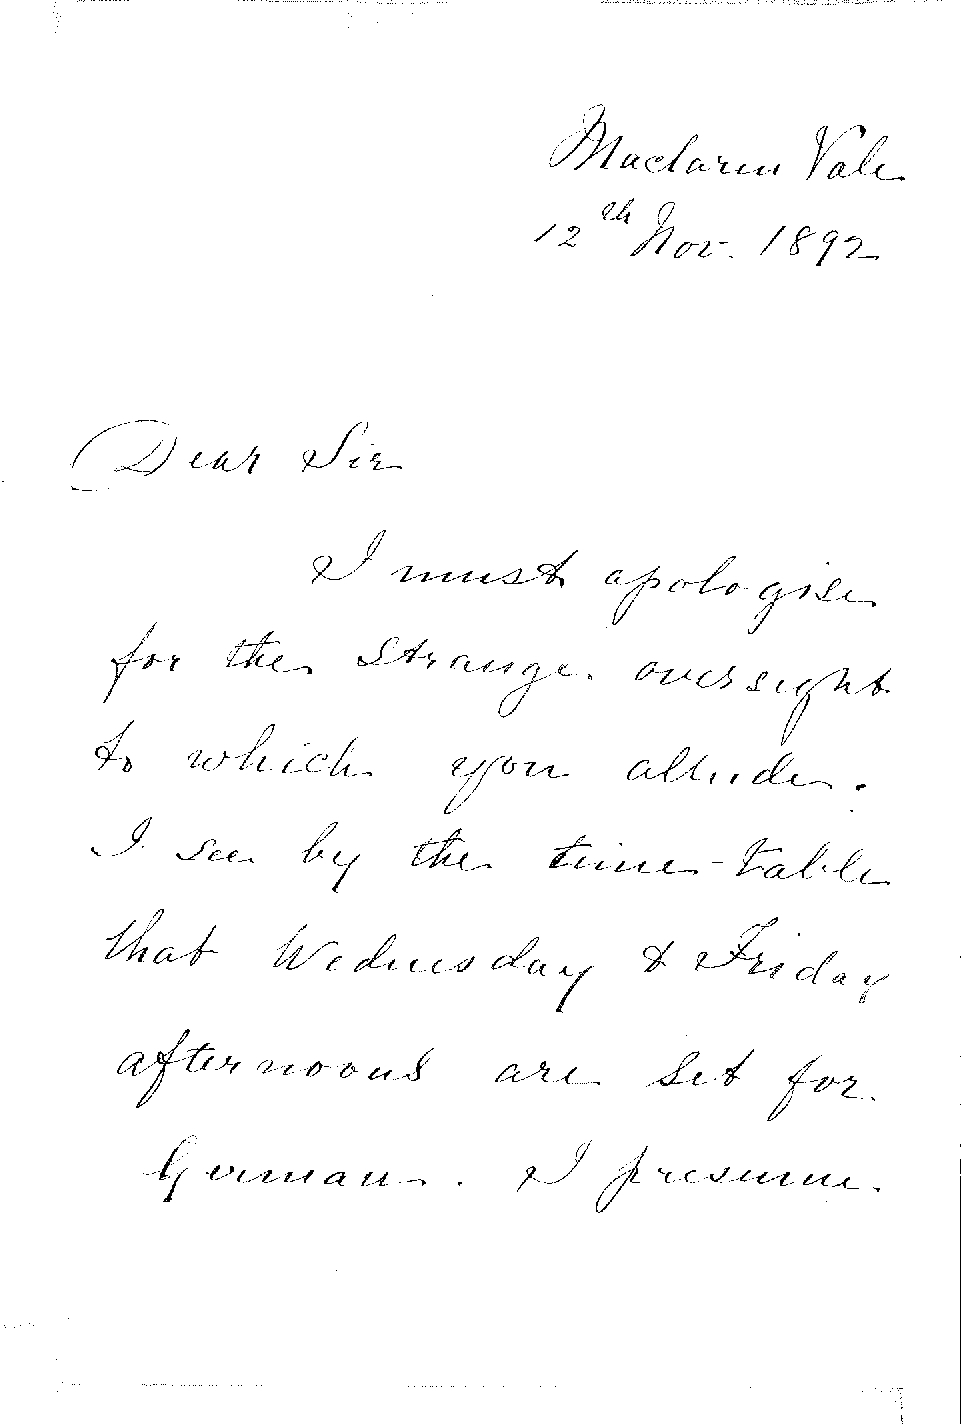 Maclaren Vale
12th Nov. 1892
Dear Sir
I must apologise
for the strange oversight
to which you allude.
I see by the time-table
that Wednesday & Friday
afternoons are set for
German. I presume